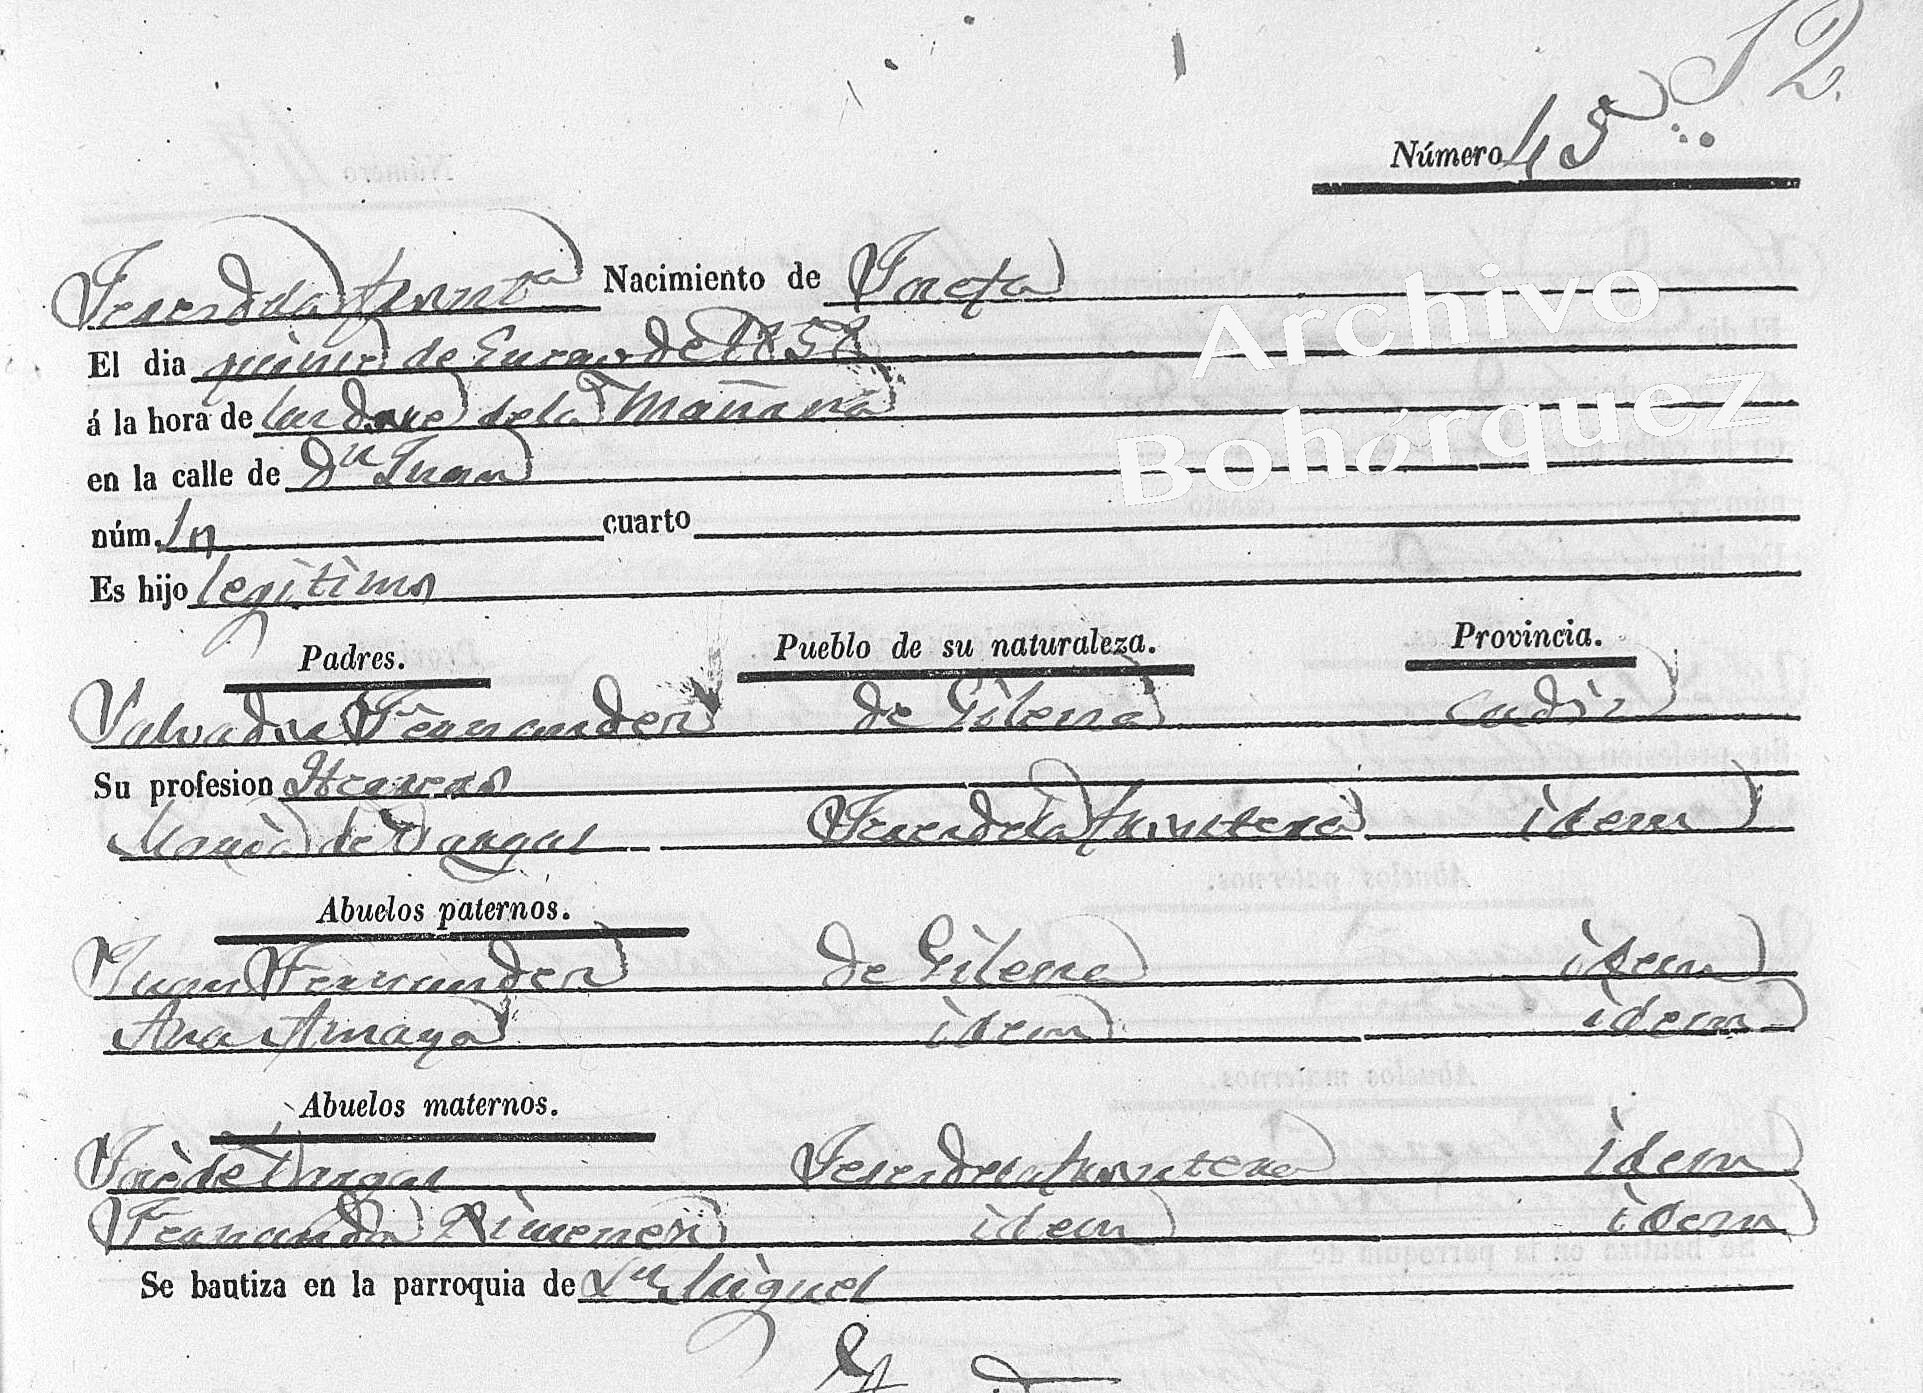 52.
Número 45
Jerez de la Frontra Nacimiento de Josefa
El dia quince de Enero de 1858
á la hora de las doce de la Mañana
en la calle de Dn Juan
núm. 1n cuarto
Es hijo legitimo
Padres. Pueblo de su naturaleza. Provincia.
Salvador Fernandez de Gilena Cadiz
Su profesion
Maria de Vargas Jerez de la Frontera idem
Abuelos paternos.
Juan Fernandez de Gilena idem
Ana Amaya idem idem
Abuelos maternos.
José de Vargas Jerez de la Frontera idem
Fernanda Ximenez idem idem
Se bautiza en la parroquia de Sn Miguel
Archivo
Bohórquez